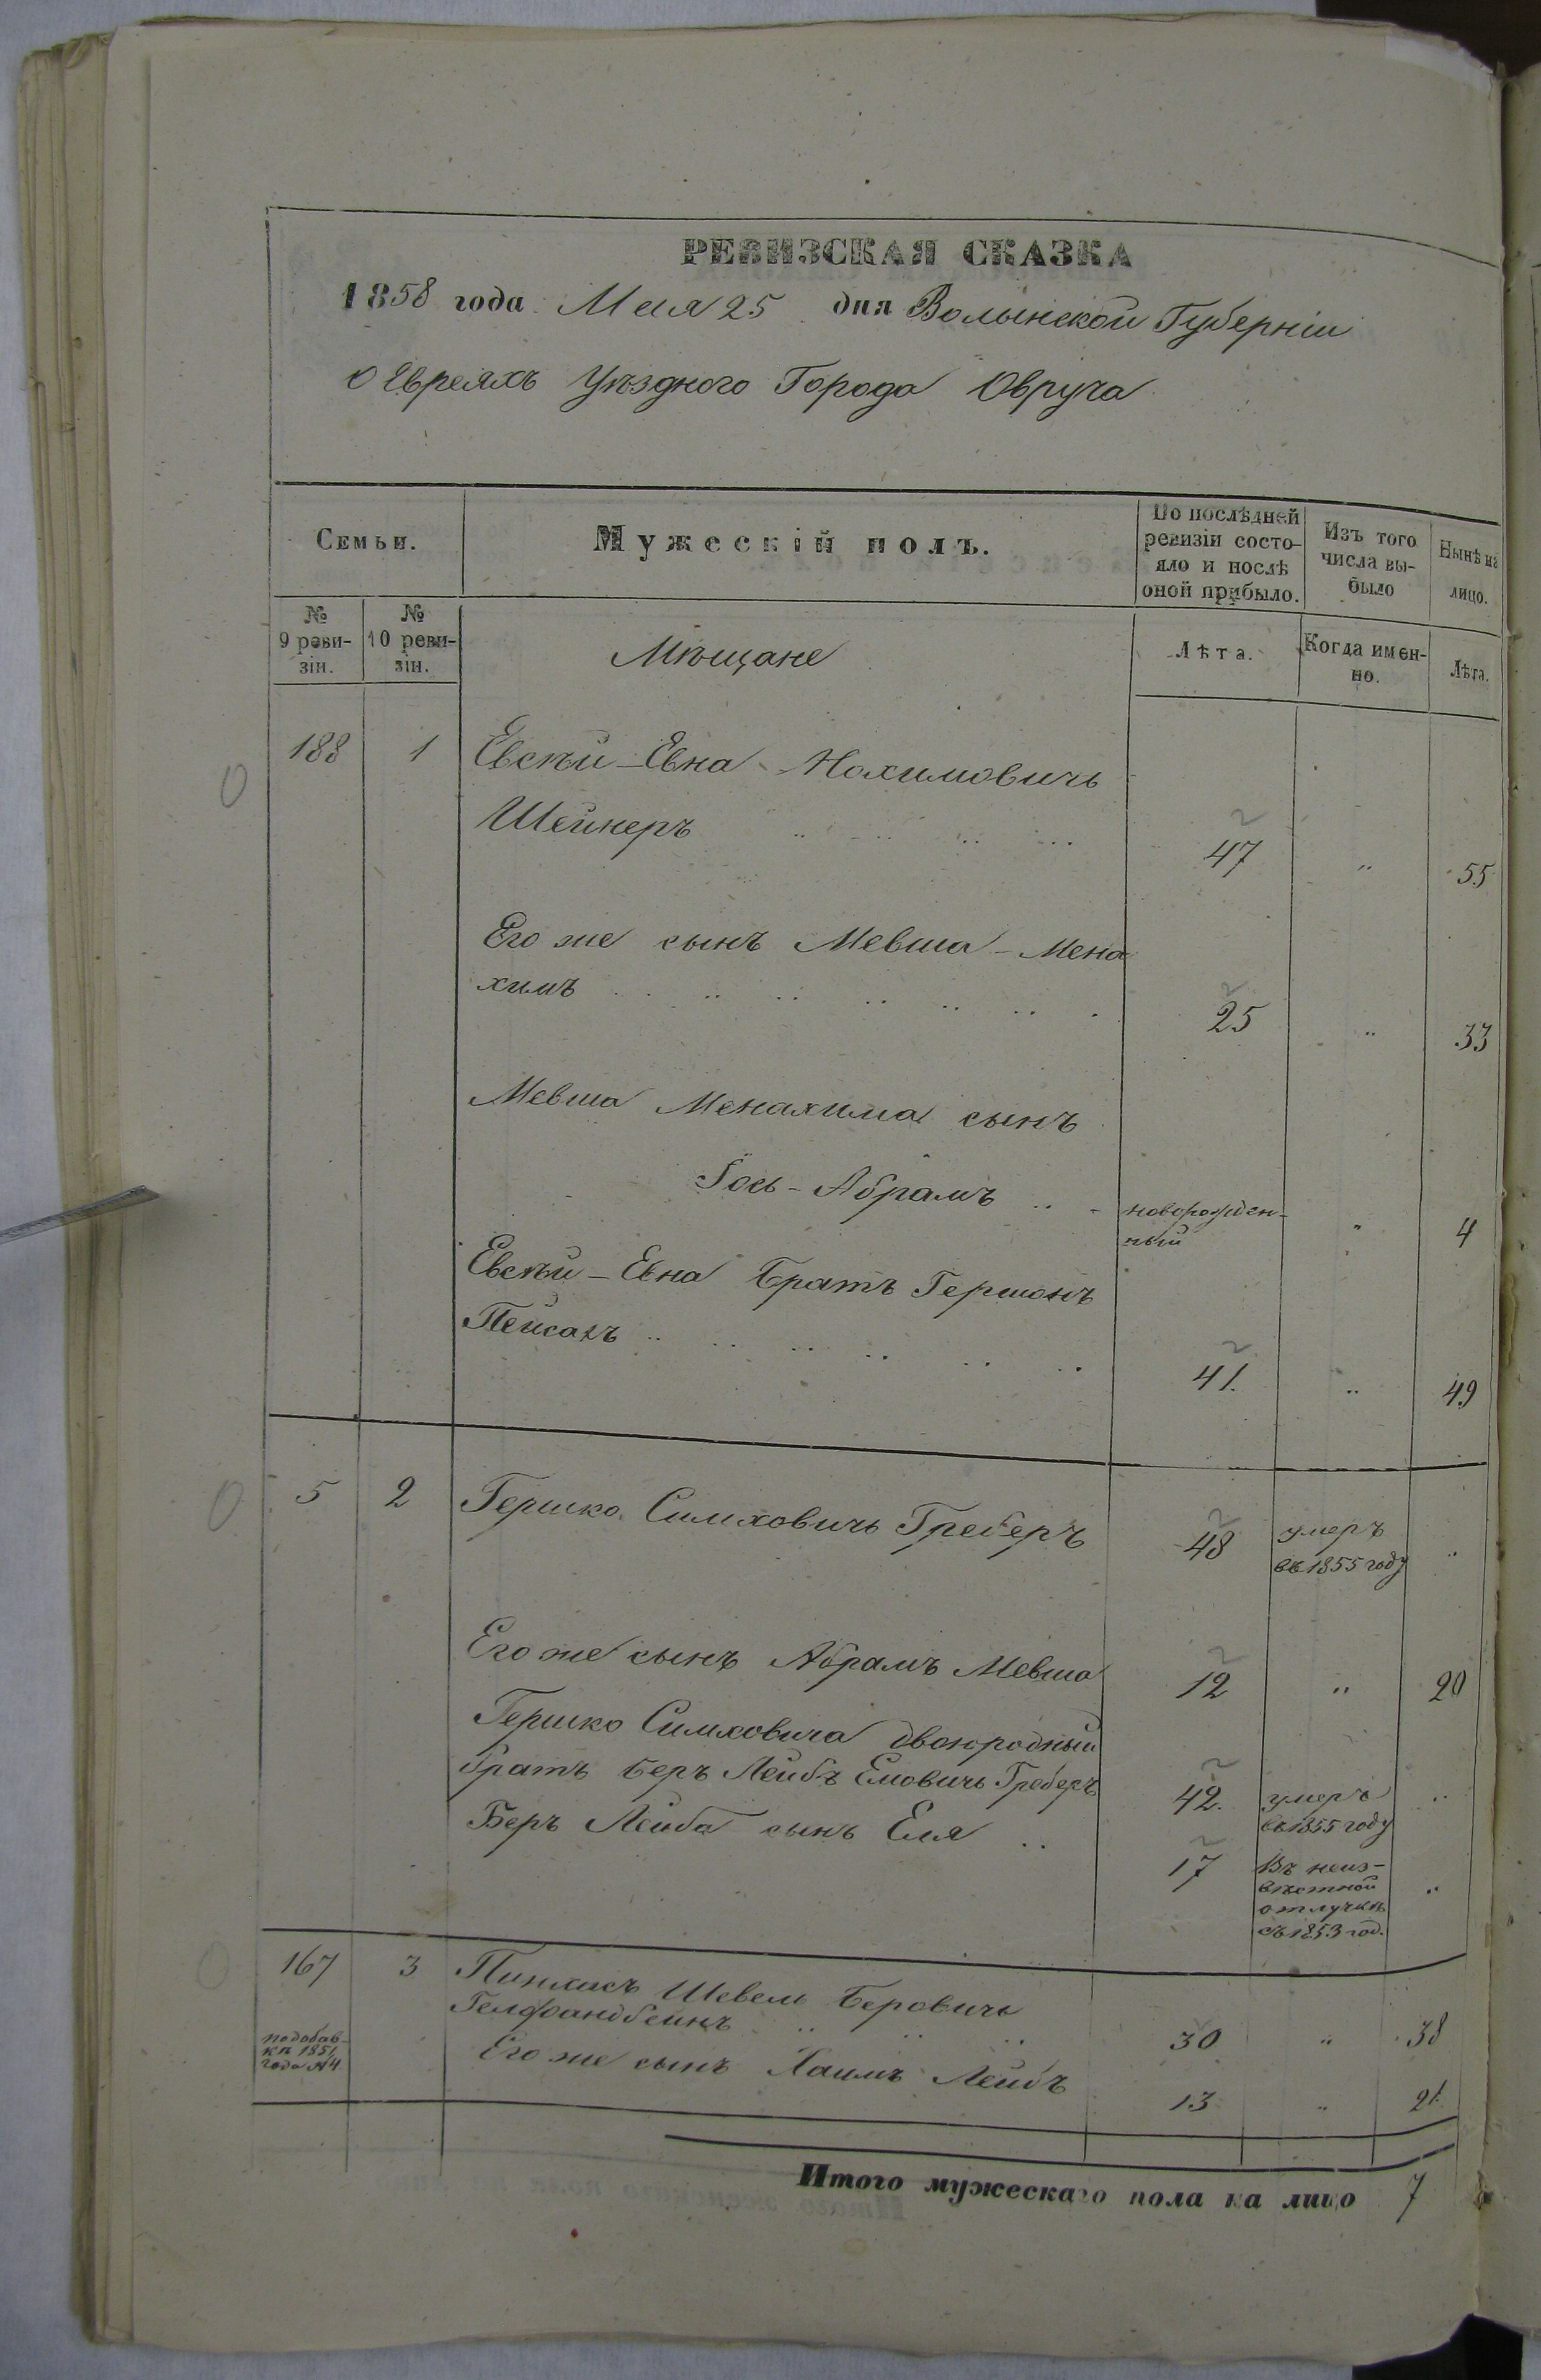 РЕВИЗСКАЯ СКАЗКА
1858 года Мая 25 дня Волынской Губерніи
о Евреяхъ Уѣзднаго Города Овруча
Семьи.
Мужескій полъ.
По послѣдней
ревизіи состо-
яло и послѣ
оной прибыло.
Изъ того
числа вы-
было
Нынѣ на
лицо.
№
9 реви-
зіи.
№
10 реви-
зіи.
Мѣщане
Лѣта.
Когда имен-
но.
Лѣта.
188 1 Евсѣй-Евна Нохимовичь
Шейнеръ 47 " 55
Его же сынъ Мевша-Мена
химъ 25 " 33
Мевша Менахима сынъ
Іось-Абрамъ новорожден-
ный " 4
Евсѣй-Евна Братъ Гершонъ
Пейсахъ 41. " 49
5 2 Гершко Симховичь Греберъ 48 умеръ
въ 1855 году "
Его же сынъ Абрамъ Мевша 12 " 20
Гершко Симховича двоюродный
братъ Беръ Лейбъ Еловичь Греберъ 42. умеръ
въ 1855 году "
Беръ Лейба сынъ Еля 17 Въ неиз-
вѣстной
отлучкѣ
съ 1853 год. "
167 3 Пинхасъ Шевель Беровичь
Гелфандбейнъ 30 " 38
подобав-
кѣ 1851
года №4
Его же сынъ Хаимъ Лейбъ 13 " 21
Итого мужескаго пола на лицо 7